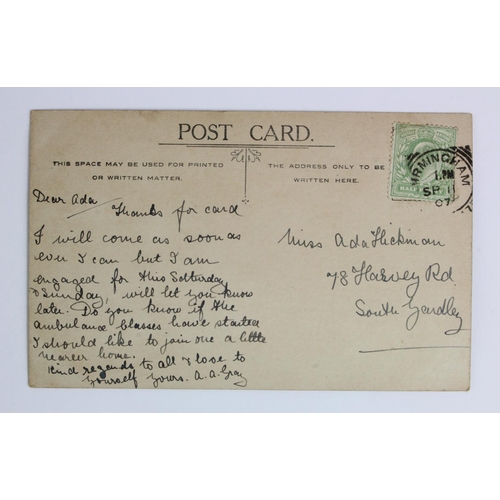 POST CARD.
THIS SPACE MAY BE USED FOR PRINTED
OR WRITTEN MATTER.
THE ADDRESS ONLY TO BE
WRITTEN HERE.
HALF
BIRMINGHAM
1.PM
SP 11
07
Dear Ada
Thanks for card
I will come as soon as
ever I can but I am
engaged for this Satturday
& Sunday, will let you know
later. Do you know if the
ambulance Classes have started
I should like to join one a little
nearer home.
Kind regards to all & love to
yourself Yours. A.A. Gray
Miss Ada Hickman
78 Harvey Rd
South Yardley